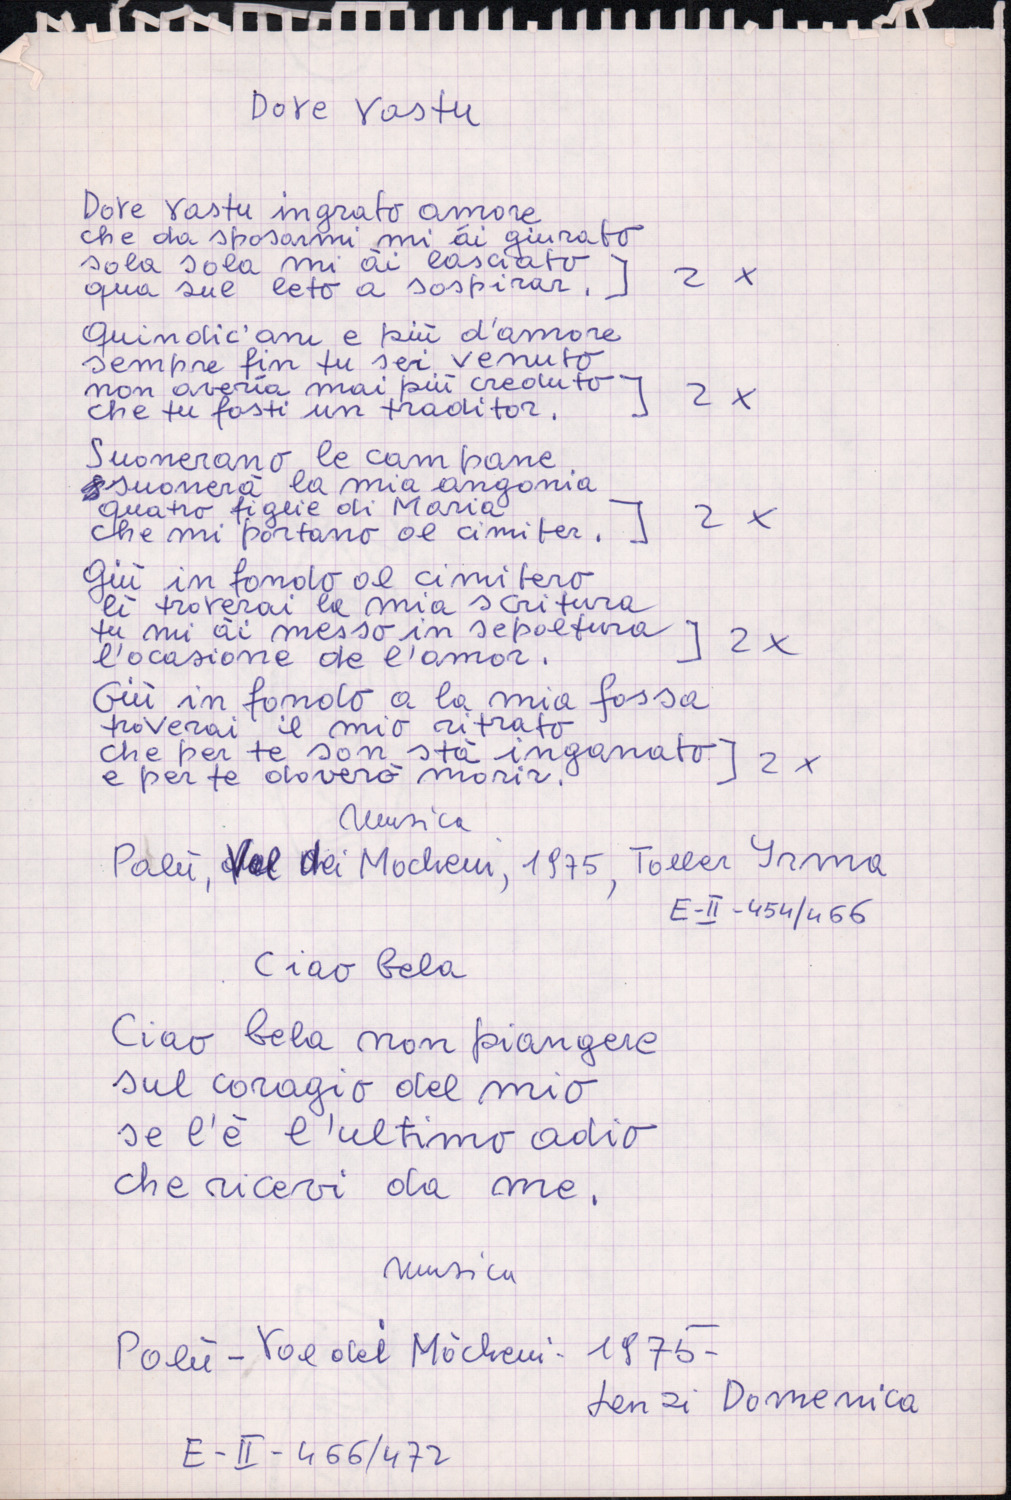 Dove vastu
Dove vastu ingrato amore
che da sposarmi mi ái giurato
sola sola mi ái lasciato
qua sul leto a sospirar. ] 2 x
Quindic'ani e più d'amore
sempre fin tu sei venuto
non averia mai più creduto
che tu fosti un traditor. ] 2 x
Suonerano le campane
suonerà la mia angonia
quatro figlie di Maria
che mi portano al cimiter. ] 2 x
Giù in fondo al cimitero
lì troverai la mia scritura
tu mi ái messo in sepoltura
l'ocasione de l'amor. ] 2 x
Giù in fondo a la mia fossa
troverai il mio ritrato
che per te son stà inganato
e per te doverò morir. ] 2 x
Musica
Palù, Val dei Mocheni, 1975, Toller Irma
E-II-454/466
Ciao bela
Ciao bela non piangere
sul coragio del mio
se l'è l'ultimo adio
che ricevi da me.
Musica
Palù - Val dei Mòcheni - 1975 -
Lenzi Domenica
E-II-466/472